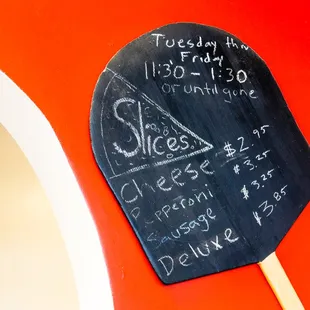 Tuesday thru
Friday
11:30 - 1:30
or until gone
Slices
Cheese $2.95
Pepperoni $3.25
Sausage $3.25
Deluxe $3.85